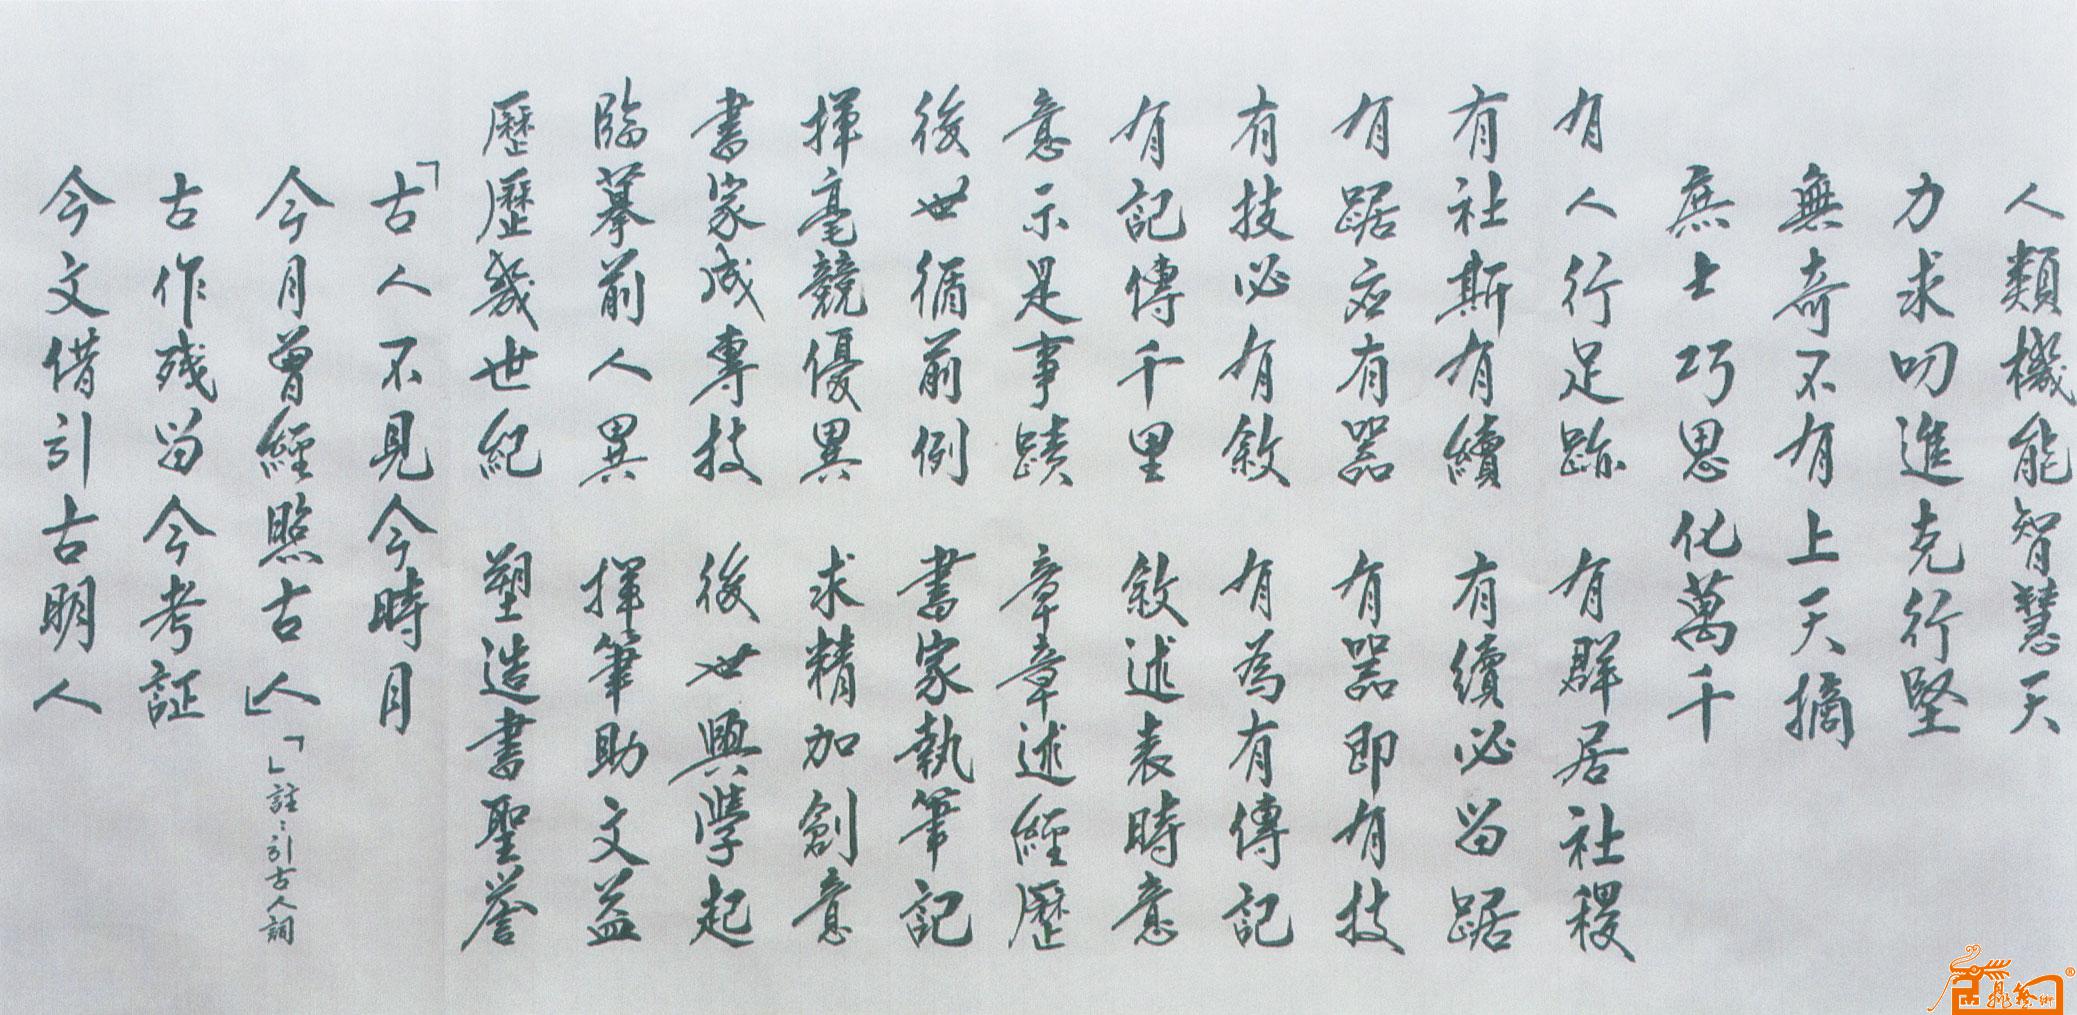 人類機能智慧天
力求叨進克行堅
無奇不有上天摘
庶士巧思化萬千
有人行足跡 有群居社稷
有社斯有續 有續必留踞
有踞应有器 有器即有技
有技必有敘 有為有傳記
有記傳千里 敘述表時意
意示是事蹟 章章述經歷
後世循前例 書家執筆記
揮毫競優異 求精加創意
書家成專技 後世興學起
臨摹前人異 揮筆助文益
歷歷幾世紀 塑造書聖譽
「古人不見今時月
今月曾經照古人」「」註：引古人詞
古作殘留今考証
今文借引古明人
鼎藝術
®